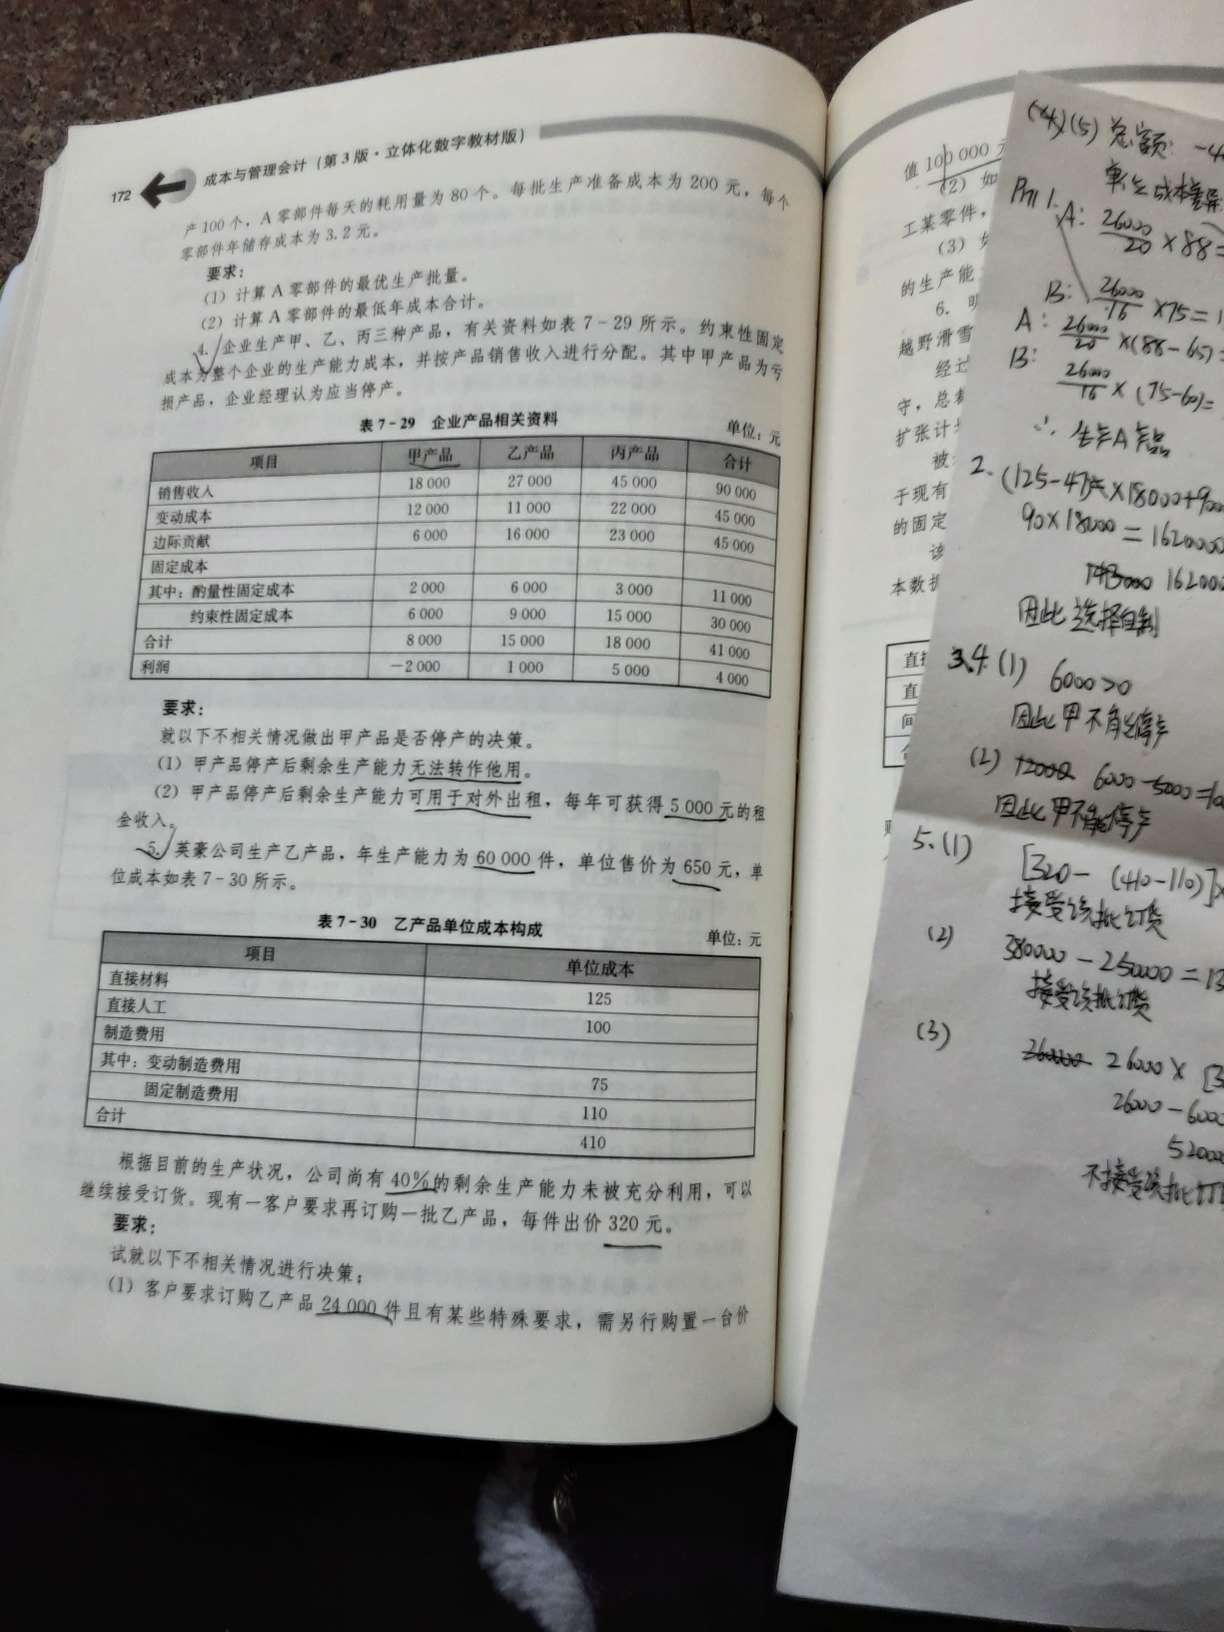 172
成本与管理会计（第3版·立体化数字教材版）
产100个，A零部件每天的耗用量为80个。每批生产准备成本为200元，每个
零部件年储存成本为3.2元。
要求：
(1) 计算A零部件的最优生产批量。
(2) 计算A零部件的最低年成本合计。
4. 企业生产甲、乙、丙三种产品，有关资料如表7-29所示。约束性固定
成本为整个企业的生产能力成本，并按产品销售收入进行分配。其中甲产品为亏
损产品，企业经理认为应当停产。
表7-29 企业产品相关资料 单位：元
项目 甲产品 乙产品 丙产品 合计
销售收入 18 000 27 000 45 000 90 000
变动成本 12 000 11 000 22 000 45 000
边际贡献 6 000 16 000 23 000 45 000
固定成本
其中：酌量性固定成本 2 000 6 000 3 000 11 000
约束性固定成本 6 000 9 000 15 000 30 000
合计 8 000 15 000 18 000 41 000
利润 -2 000 1 000 5 000 4 000
要求：
就以下不相关情况做出甲产品是否停产的决策。
(1) 甲产品停产后剩余生产能力无法转作他用。
(2) 甲产品停产后剩余生产能力可用于对外出租，每年可获得5 000元的租
金收入。
5. 英豪公司生产乙产品，年生产能力为60 000件，单位售价为650元，单
位成本如表7-30所示。
表7-30 乙产品单位成本构成 单位：元
项目 单位成本
直接材料 125
直接人工 100
制造费用
其中：变动制造费用 75
固定制造费用 110
合计 410
根据目前的生产状况，公司尚有40%的剩余生产能力未被充分利用，可以
继续接受订货。现有一客户要求再订购一批乙产品，每件出价320元。
要求：
试就以下不相关情况进行决策：
(1) 客户要求订购乙产品24 000件且有某些特殊要求，需另行购置一台价
值100 000
(2) 如
工某零件，
(3)
的生产能
6.
越野滑雪
经过
守，总
扩张计
被
于现有
的固定
该
本数据
直
直
间
(4)(5) 总额：
单位成本差异
P171 1.
A: 26000/20 ×88=
B: 26000/16 ×75=
A: 26000/20 ×(88-65)=
B: 26000/16 × (75-60)=
∴ 生产A产品
2.
90×18000=1620000
因此选择自制
4.(1) 6000>0
因此甲不能停产
(2) 6000-5000=
因此甲不能停产
5.(1) [320-(410-110)]×
接受该批订货
(2) 380000-250000=
接受该批订货
(3) 26000×
不接受该批订